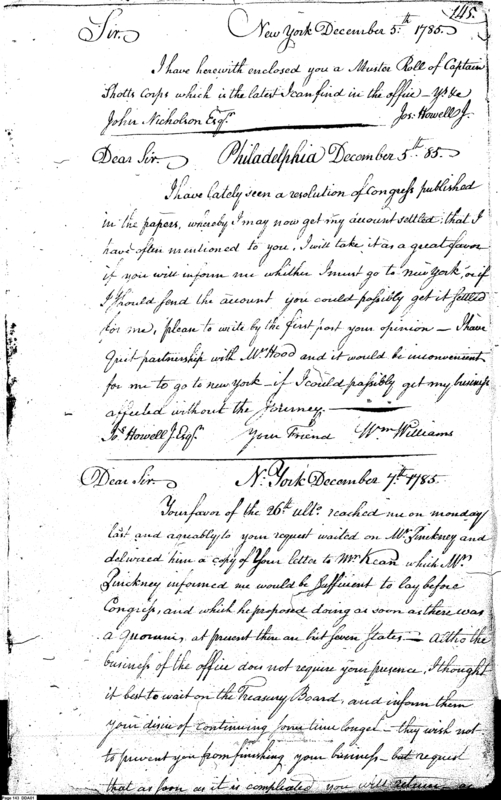 145.
Sir. New York December 5.th 1785.
I have herewith enclosed you a Muster Roll of Captain
Shotts Corps which is the latest I can find in the office — Yrs &c
John Nicholson Esqr. Jos: Howell J.
Dear Sir. Philadelphia December 5th 85.
I have lately seen a resolution of Congress published
in the papers, whereby I may now get my account settled: that I
have often mentioned to you, I will take it as a great favor
if you will inform me whether I must go to new york, or if
I should send the account you could possibly get it settled
for me, please to write by the first post your opinion — I have
Quit partnership with Mr. Hood and it would be inconvenient
for me to go to new york — if I could possibly get my business
affected without the Journey.
Jos Howell J. Esqr. Your Friend Wm Williams
Dear Sir. N. York December 7th 1785.
Your favor of the 26th ulto. reached me on monday
last and agreably to your request waited on Mr. Pinckney and
delivered him a copy of Your letter to Mr Kean which Mr.
Pinckney informed me would be Sufficient to lay before
Congress, and which he proposed doing as soon as there was
a quorum, at present there are but seven States. — Altho the
business of the office does not require your presence, I thought
it best to wait on the Treasury Board, and inform them
your desire of continuing some time longer — they wish not
to prevent you from finishing your business — but request
that as soon as it is compleated you will return
Page 143